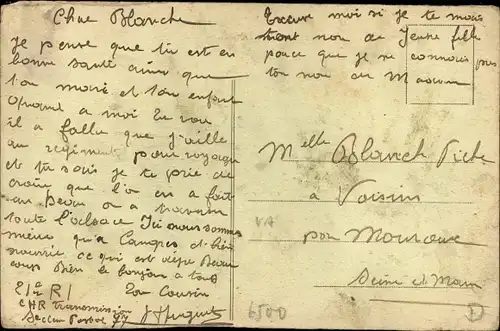 Chère Blanche
je pense que tu est en
bonne santé ainsi que
ton mari et ton enfant
Quand a moi Tu vois
il a fallu que j'aille
au régiment pour voyager
et tu sais je te prie de
croire que l'on en a fait
du Beau on a traversé
toute l'alsace Ici nous sommes
mieux qu'a Langres et bien
nourrie ce qui est déjà Beau
coup Bien le bonjour a tous
21e R I Ton Cousin
CHR transmission
Secteur Postal
Excuse moi si je te mais
nom de Jeune fille
parce que je ne connais pas
ton nom de Madame
Melle Blanch
à Voisins
par Mouroux
Seine et Marne
VA
6500
D